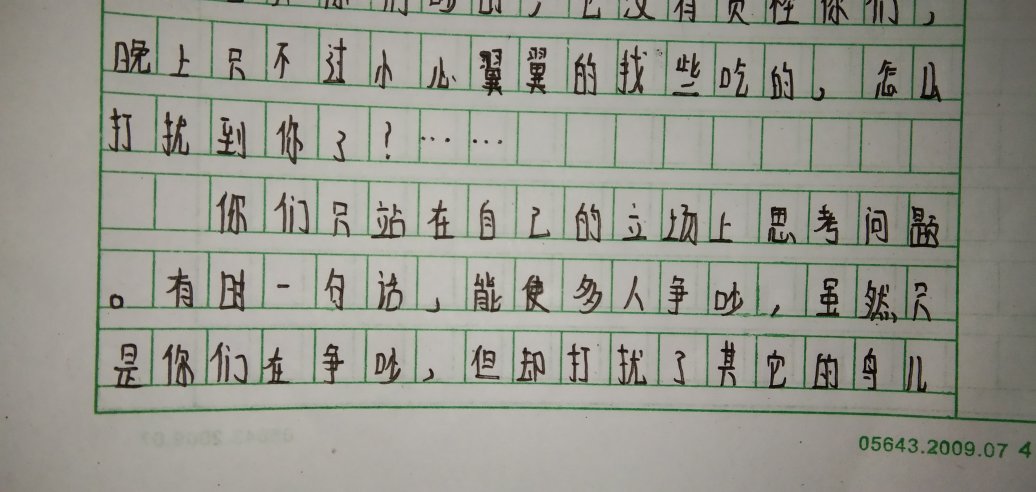 你们吵的，它没有责怪你们，
晚上只不过小心翼翼的找些吃的，怎么
打扰到你了？……
你们只站在自己的立场上思考问题
。有时一句话，能使多人争吵，虽然只
是你们在争吵，但却打扰了其它的鸟儿
05643.2009.07 4